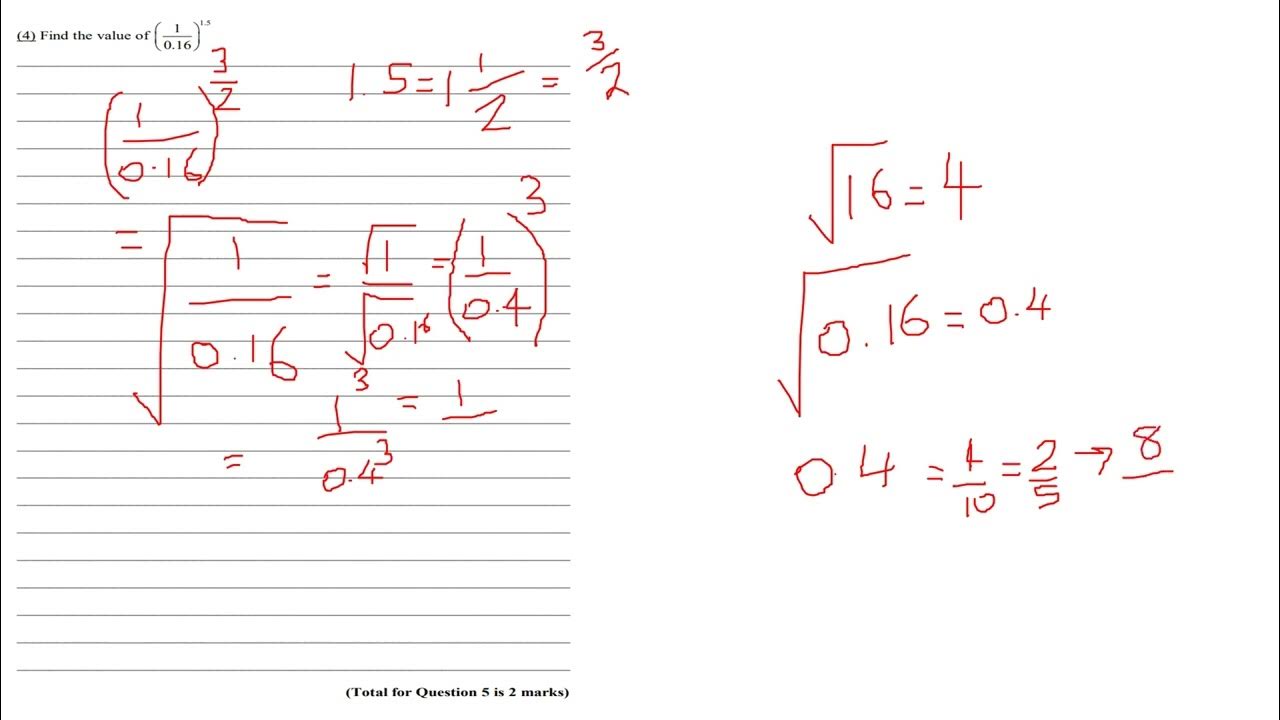 (4) Find the value of (1/0.16)^1.5
(1/0.16)^3/2
1.5 = 1 1/2 = 3/2
= √(1/0.16) = √1/√0.16 = (1/0.4)^3
= 1^3/0.4^3 = 1/
√16 = 4
√0.16 = 0.4
0.4 = 4/10 = 2/5 → 8/
(Total for Question 5 is 2 marks)